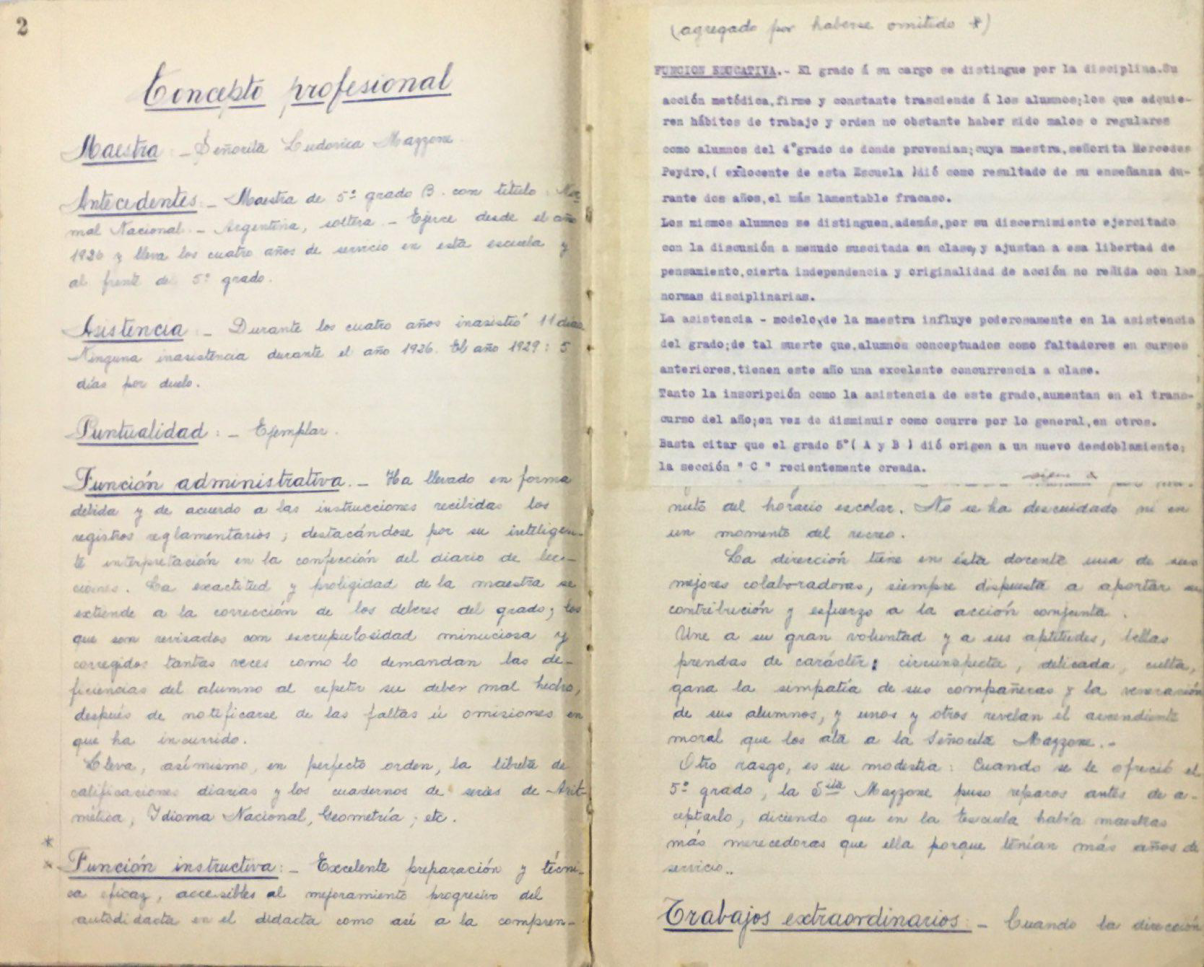 2
Concepto profesional
Maestra - Señorita Ludovica Mazzone
Antecedentes - Maestra de 5º grado B. con título Nor-
mal Nacional - Argentina, soltera. - Ejerce desde el año
1926 y lleva los cuatro años de servicio en esta escuela y
al frente de 5º grado.
Asistencia - Durante los cuatro años inasistió 11 días
Ninguna inasistencia durante el año 1926. El año 1929: 5
días por duelo.
Puntualidad: - Ejemplar.
Función administrativa. - Ha llevado en forma
debida y de acuerdo a las instrucciones recibidas los
registros reglamentarios; destacándose por su inteligen-
te interpretación en la confección del diario de lec-
ciones. La exactitud y proligidad de la maestra se
extiende a la corrección de los deberes del grado; los
que son revisados con escrupulosidad minuciosa y
corregidos tantas veces como lo demandan las de-
ficiencias del alumno al repetir su deber mal hecho,
después de notificarse de las faltas ú omisiones en
que ha incurrido.
Lleva, asímismo, en perfecto orden, la libreta de
calificaciones diarias y los cuadernos de series de Arit-
mética, Idioma Nacional, Geometría, etc.
*
* Función instructiva: - Excelente preparación y técni-
ca eficaz, accesibles al mejoramiento progresivo del
autodidacta en el didacta como así a la compren-
(agregado por haberse omitido *)
FUNCION EDUCATIVA.- El grado á su cargo se distingue por la disciplina.Su
acción metódica,firme y constante trasciende á los alumnos;los que adquie-
ren hábitos de trabajo y orden no obstante haber sido malos o regulares
como alumnos del 4°grado de donde provenian;cuya maestra,señorita Mercedes
Peydro,( exdocente de esta Escuela )dió como resultado de su enseñanza du-
rante dos años,el más lamentable fracaso.
Los mismos alumnos se distinguen,además,por su discernimiento ejercitado
con la discusión a menudo suscitada en clase, y ajustan a esa libertad de
pensamiento,cierta independencia y originalidad de acción no reñida con las
normas disciplinarias.
La asistencia - modelo,de la maestra influye poderosamente en la asistencia
del grado;de tal suerte que,alumnos conceptuados como faltadores en cursos
anteriores,tienen este año una excelente concurrencia a clase.
Tanto la inscripción como la asistencia de este grado,aumentan en el trans-
curso del año;en vez de disminuir como ocurre por lo general,en otros.
Basta citar que el grado 5°( A y B ) dió origen a un nuevo desdoblamiento;
la sección " C " recientemente creada.
nuto del horario escolar. No se ha descuidado ni en
un momento del recreo.
La dirección tiene en ésta docente una de sus
mejores colaboradoras, siempre dispuesta a aportar su
contribución y esfuerzo a la acción conjunta.
Une a su gran voluntad y a sus aptitudes, bellas
prendas de carácter; circunspecta, delicada, culta,
gana la simpatía de sus compañeras y la veneración
de sus alumnos, y unos y otros revelan el ascendiente
moral que los ata a la Señorita Mazzone. -
Otro rasgo, es su modestia: Cuando se le ofreció el
5º grado, la Srita Mazzone puso reparos antes de a-
ceptarlo, diciendo que en la Escuela había maestras
más merecedoras que ella porque tenían más años de
servicio..
Trabajos extraordinarios. - Cuando la dirección